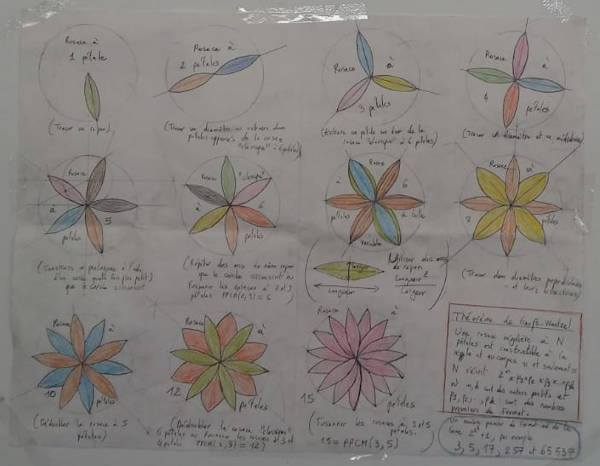 Rosace à
1 pétale
(Tracer un rayon)
Rosace à
2 pétales
(Tracer un diamètre ou retirer deux
pétales opposés de la rosace
"classique" à 6 pétales)
Rosace à
3 pétales
(Retirer un pétale sur deux de la
rosace "classique" à 6 pétales)
Rosace à
4 pétales
(Tracer un diamètre et sa médiatrice)
Rosace
à 5
pétales
(Construire un pentagone à l'aide
d'un cercle
que le cercle
Rosace "classique"
à 6
pétales
(Reporter des arcs de même rayon
que le cercle
Fusionner les rosaces à 2 et 3
pétales PPCM(2,3) = 6
Rosace
à 6
pétales de taille
variable
largeur
Longueur
Utiliser des arcs
de rayon
Longueur
Largeur
Rosace à
8 pétales
(Tracer deux diamètres perpendiculaires
et leurs bissectrices)
Rosace à
10 pétales
(Dédoubler la rosace à 5
pétales)
Rosace à
12 pétales
(Dédoubler la rosace "classique"
à 6 pétales ou fusionner les rosaces à 3 et
4 pétales PPCM(4,3) = 12)
Rosace à
15 pétales
(Fusionner les rosaces à 3 et 5
pétales.
15 = PPCM(3,5)
Théorème de Gauss-Wantzel
Une rosace régulière à N
pétales est constructible à la
règle et au compas si et seulement si
N s'écrit 2^n
et n, k sont des entiers positifs et
p1, p2, ... pk sont des nombres
premiers de Fermat.
Un nombre premier de Fermat est de la
forme 2 +1, par exemple
3, 5, 17, 257 et 65 537